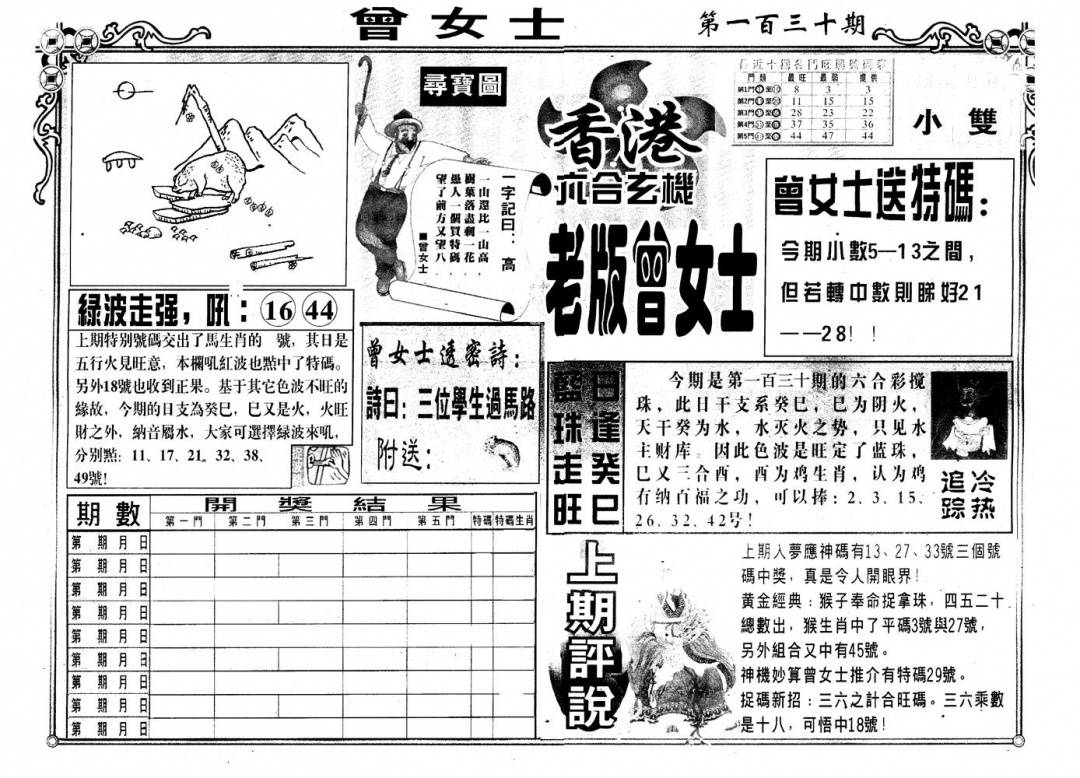 曾女士
第一百三十期
尋寶圖
一字記曰：高
一山還比一山高，
樹葉落盡剩一花，
愚人一個買特碼，
望了前方又望八。
■曾女士
香港
六合玄機
老版曾女士
門類 最旺 最弱 提供
第1門 至 8 3 3
第2門 至 11 15 15
第3門 至 28 23 22
第4門 至 37 35 36
第5門 至 44 47 44
小雙
曾女士送特碼：
今期小數5—13之間，
但若轉中數則睇好21
——28！！
綠波走强，吼：16 44
上期特别號碼交出了馬生肖的 號，其日是
五行火見旺意，本欄吼紅波也點中了特碼。
另外18號也收到正果。基于其它色波不旺的
緣故，今期的日支為癸巳，巳又是火，火旺
財之外，納音屬水，大家可選擇緑波來吼，
分别點：11、17、21、32、38、
49號！
曾女士透密詩：
詩曰：三位學生過馬路
附送：
藍珠走旺
日逢癸巳
今期是第一百三十期的六合彩搅
珠，此日干支系癸巳，巳为阴火，
天干癸为水，水灭火之势，只见水
主财库。因此色波是旺定了蓝珠，
巳又三合酉，酉为鸡生肖，认为鸡
有纳百福之功，可以捧：2、3、15、
26、32、42号！
冷热
追踪
期數 開獎結果
第一門 第二門 第三門 第四門 第五門 特碼 特碼生肖
第 期 月 日
第 期 月 日
第 期 月 日
第 期 月 日
第 期 月 日
第 期 月 日
第 期 月 日
第 期 月 日
第 期 月 日
上期評説
上期人夢應神碼有13、27、33號三個號
碼中獎，真是令人開眼界！
黄金經典：猴子奉命捉拿珠，四五二十
總數出，猴生肖中了平碼3號與27號，
另外組合又中有45號。
神機妙算曾女士推介有特碼29號。
捉碼新招：三六之計合旺碼。三六乘數
是十八，可悟中18號！